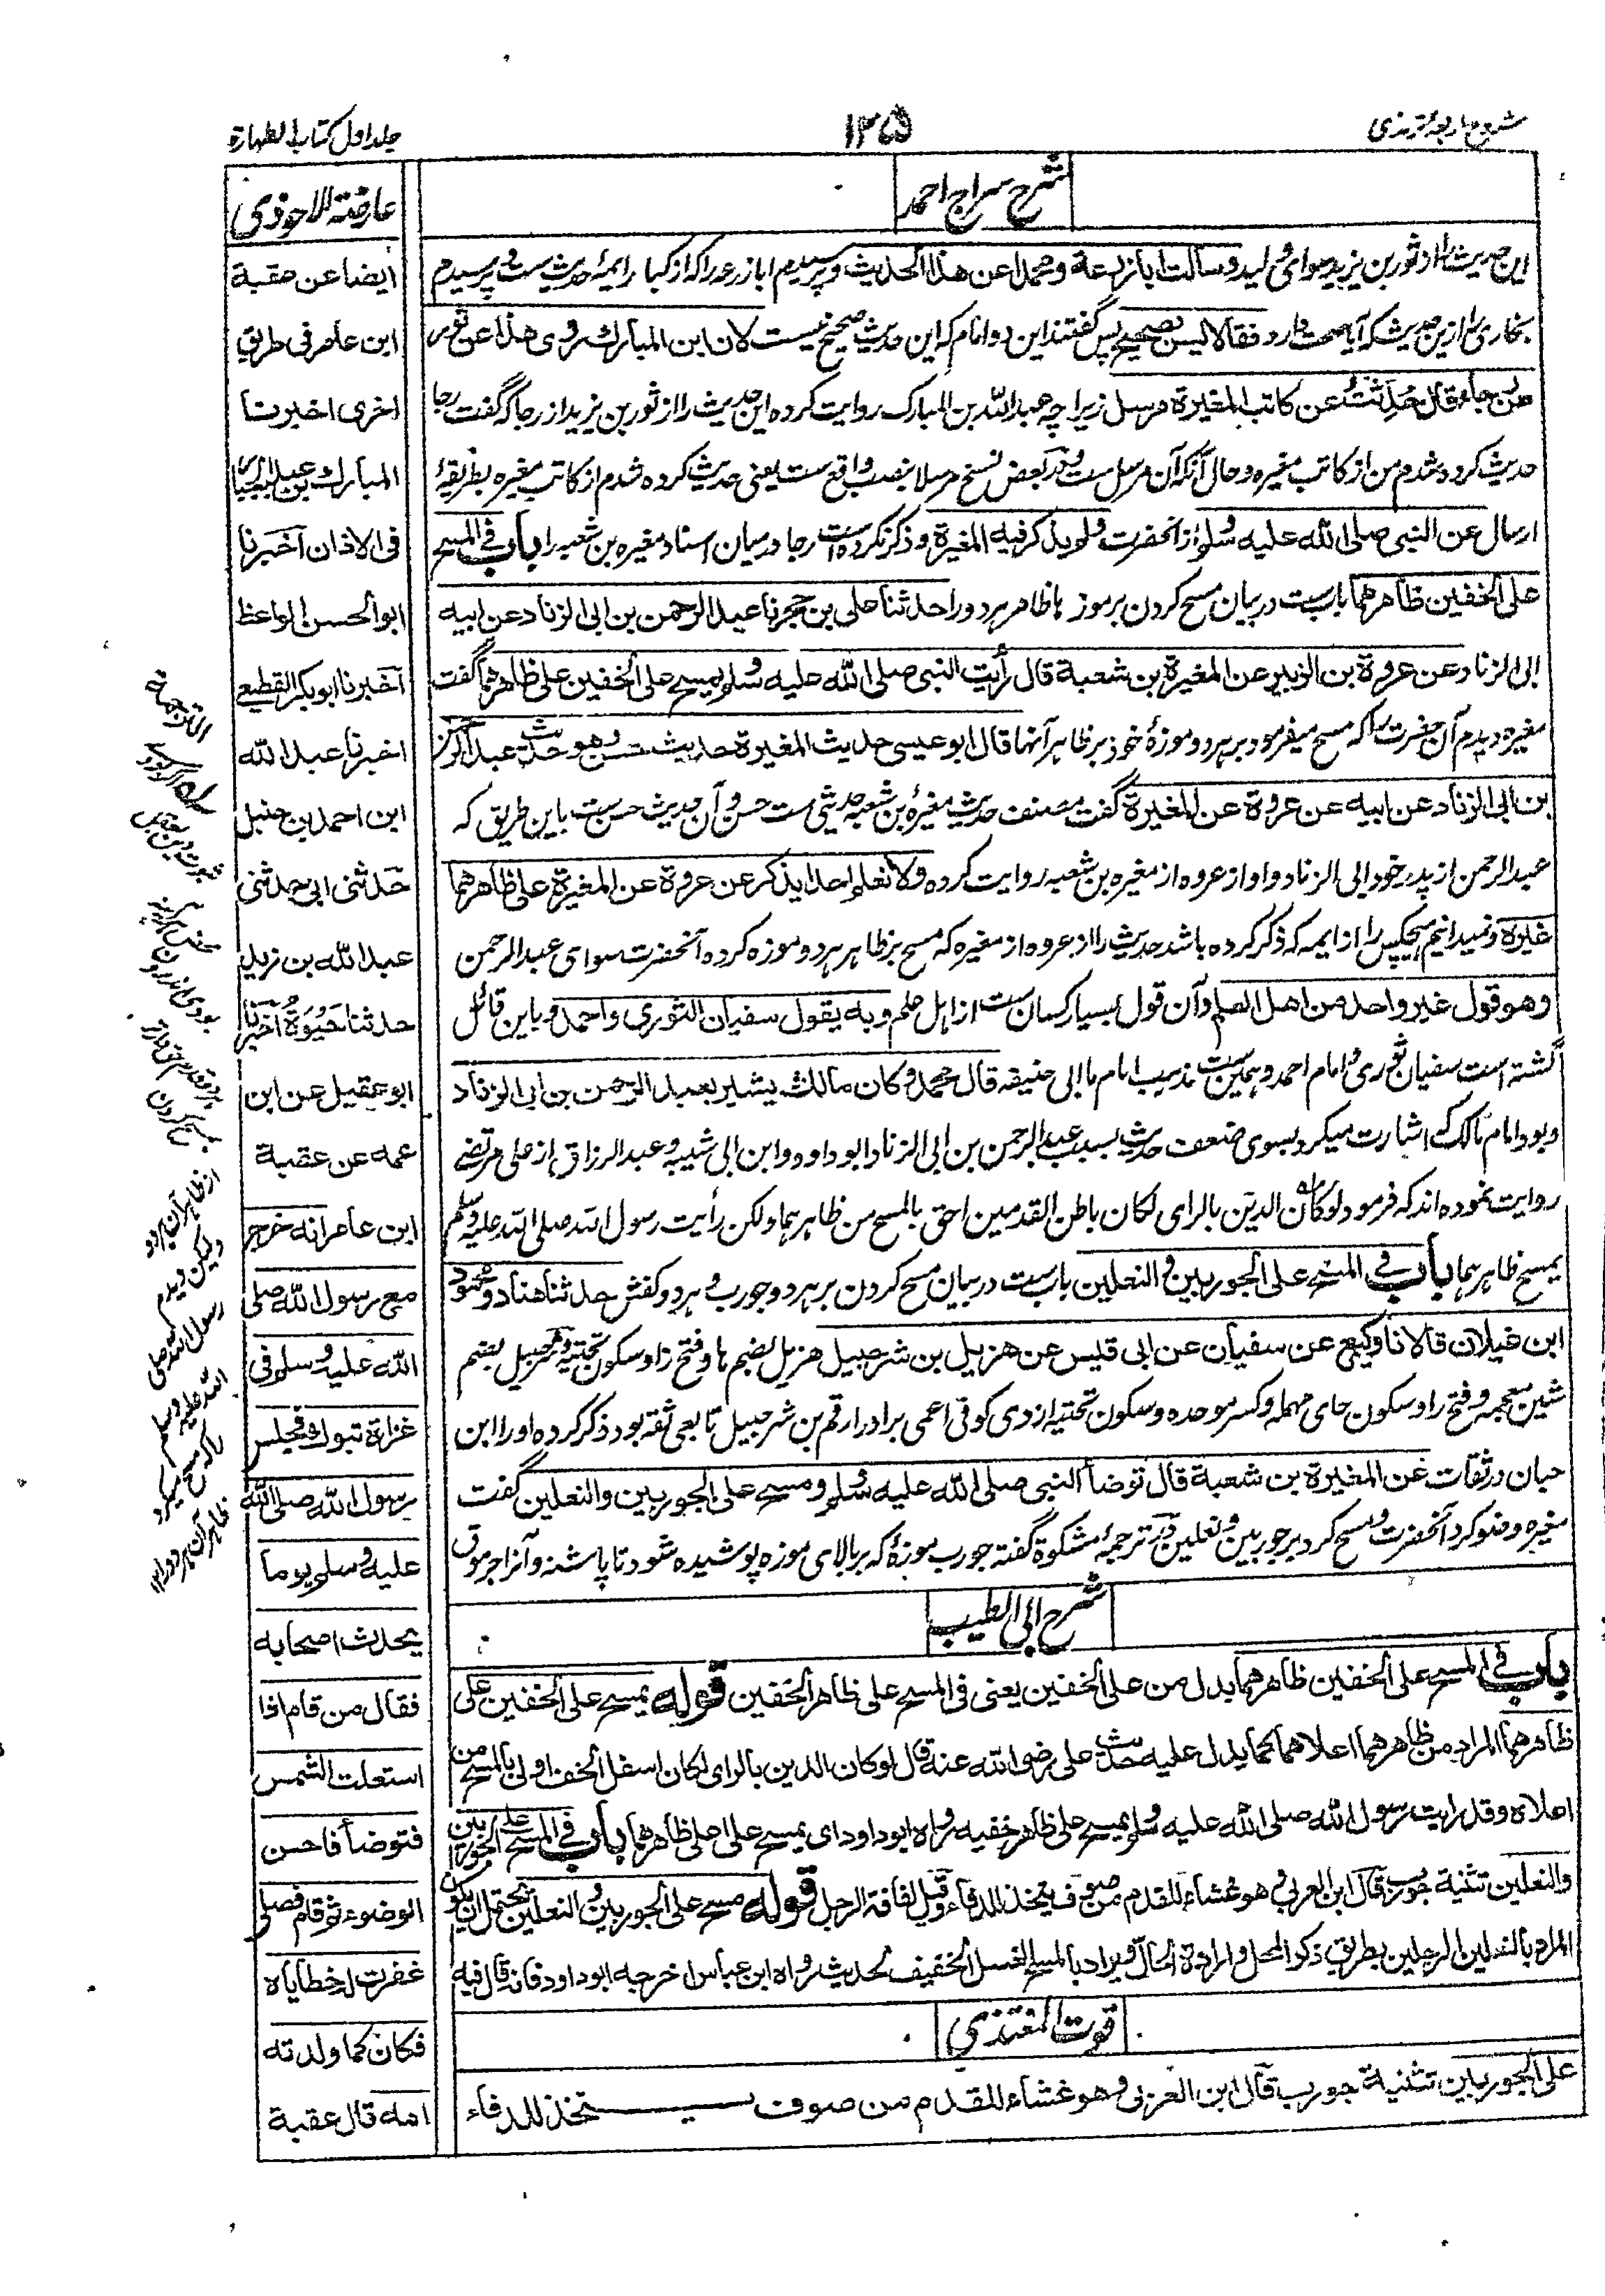 شروح اربعه ترمذی
۱۲۵
جلد اول کتاب الطهارة
شرح سراج احمد
این حدیث را از ثور بن یزید سوای ولید وسألت ابا زرعة ومحمدا عن هذا الحدیث و پرسیدم ابا زرعه را که از کبار ایمهٔ حدیث ست و پرسیدم
بخاری را ازین حدیث که آیا صحت دارد فقالا لیس بصحیح پس گفتند این دو امام که این حدیث صحیح نیست لان ابن المبارك روی هذا عن ثور
عن رجاء قال حُدِّثتُ عن کاتب المغیرة مرسل زیرا چه عبد الله بن المبارک روایت کرده این حدیث را از ثور بن یزید از رجا که گفت رجا
حدیث کرده شدم من از کاتب مغیره و حال آنکه آن مرسل ست و در بعض نسخ مرسلا بنصب واقع ست یعنی حدیث کرده شدم از کاتب مغیره بطریقهٔ
ارسال عن النبی صلی الله علیه وسلم از آنحضرت ولم یذکر فیه المغیرة و ذکر نکرده است رجا درمیان اسناد مغیره بن شعبه را باب فی المسح
علی الخفین ظاهرهما باب ست در بیان مسح کردن بر موزه ها ظاهر هر دو را حدثنا علی بن حجر نا عبد الرحمن بن ابی الزناد عن ابیه
ابی الزناد عن عروة بن الزبیر عن المغیرة بن شعبة قال رأیت النبی صلی الله علیه وسلم یمسح علی الخفین علی ظاهرهما گفت
مغیره دیدم آن حضرت را که مسح میفرمود بر هر دو موزهٔ خود بر ظاهر آنها قال ابو عیسی حدیث المغیرة حدیث حسن وهو حدیث عبد الرحمن
بن ابی الزناد عن ابیه عن عروة عن المغیرة گفت مصنف حدیث مغیرهٔ بن شعبه حدیثی ست حسن و آن حدیث حسن ست باین طریق که
عبد الرحمن از پدر خود ابی الزناد و او از عروه از مغیره بن شعبه روایت کرده ولا نعلم احدا یذکر عن عروة عن المغیرة علی ظاهرهما
غیره و نمیدانیم هیچکس را از ایمه که ذکر کرده باشد حدیث را از عروه از مغیره که مسح بر ظاهر هر دو موزه کرده آنحضرت سوای عبد الرحمن
وهو قول غیر واحد من اهل العلم و آن قول بسیار کسان ست از اهل علم وبه یقول سفیان الثوری واحمد و باین قائل
گشته است سفیان ثوری و امام احمد و همین ست مذهب امام ما ابی حنیفه قال محمد وکان مالك یشیر بعبد الرحمن بن ابی الزناد
و بود امام مالک که اشارت میکرد بسوی ضعف حدیث بسبب عبد الرحمن بن ابی الزناد ابو داود و ابن ابی شیبه و عبد الرزاق از علی مرتضی
روایت نموده اند که فرمود لو کان الدین بالرای لکان باطن القدمین احق بالمسح من ظاهرهما ولکن رأیت رسول الله صلی الله علیه وسلم
یمسح ظاهرهما باب فی المسح علی الجوربین والنعلین باب ست در بیان مسح کردن بر هر دو جورب و هر دو کفش حدثنا هناد ومحمود
ابن غیلان قالا نا وکیع عن سفیان عن ابی قیس عن هزیل بن شرحبیل هزیل بضم ها و فتح زا و سکون تحتیه و شرحبیل بضم
شین معجمه و فتح را و سکون حای مهمله و کسر موحده و سکون تحتیه ازدی کوفی اعمی برادر ارقم بن شرحبیل تابعی ثقه بود ذکر کرده او را ابن
حبان در ثقات عن المغیرة بن شعبة قال توضأ النبی صلی الله علیه وسلم ومسح علی الجوربین والنعلین گفت
مغیره وضو کرد آنحضرت و مسح کرد بر جوربین و نعلین در ترجمهٔ مشکوة گفته جورب موزهٔ که بر بالای موزه پوشیده شود تا پاشنه و آنرا جرموق
شرح ابی الطیب
باب فی المسح علی الخفین ظاهرهما بدل من علی الخفین یعنی فی المسح علی ظاهر الخفین قوله یمسح علی الخفین علی
ظاهرهما المراد من ظاهرهما اعلاهما کما یدل علیه حدیث علی رضی الله عنه قال لو کان الدین بالرای لکان اسفل الخف اولی بالمسح من
اعلاه وقد رایت رسول الله صلی الله علیه وسلم یمسح علی ظاهر خفیه رواه ابو داود ای یمسح علی اعلی ظاهرهما باب فی المسح علی الجوربین
والنعلین تثنیة جورب قال ابن العربی هو غشاء للقدم من صوف یتخذ للدفاء وقیل لفافة الرجل قوله مسح علی الجوربین والنعلین یحتمل ان یکون
المراد بالنعلین الرجلین بطریق ذکر المحل وارادة الحال ویراد بالمسح الغسل الخفیف لحدیث رواه ابن عباس اخرجه ابو داود فانه قال فیه
قوت المغتذی
علی الجوربین تثنیة جورب قال ابن العربی وهو غشاء للقدم من صوف یتخذ للدفاء
عارضة الاحوذی
ایضا عن عقبة
ابن عامر فی طریق
اخری اخبرنا
المبارك بن عبد الجبار
فی الاذان اخبرنا
ابو الحسن الواعظ
اخبرنا ابو بکر القطیعی
اخبرنا عبد الله
ابن احمد بن حنبل
حدثنی ابی حدثنی
عبد الله بن زید
حدثنا حیوة اخبرنا
ابو عقیل عن ابن
عمه عن عقبة
ابن عامر انه خرج
مع رسول الله صلی
الله علیه وسلم فی
غزاة تبوك فجلس
رسول الله صلی الله
علیه وسلم یوما
یحدث اصحابه
فقال من قام اذا
استعلت الشمس
فتوضأ فاحسن
الوضوء ثم قام فصلی
غفرت له خطایاه
فکان کما ولدته
امه قال عقبة
الترجمة
از ظاهر آن هر دو
ولیکن دیدم
رسول الله صلی
الله علیه وسلم
را که مسح میکرد
ظاهر آن هر دو را ۱۲